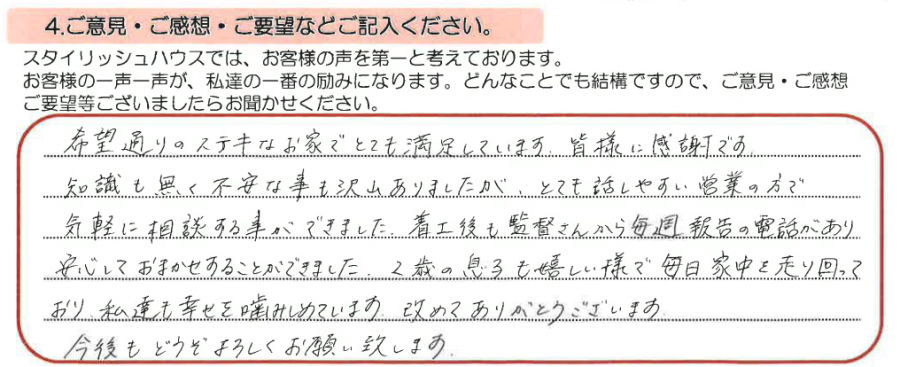 4.ご意見・ご感想・ご要望などご記入ください。
スタイリッシュハウスでは、お客様の声を第一と考えております。
お客様の一声一声が、私達の一番の励みになります。どんなことでも結構ですので、ご意見・ご感想
ご要望等ございましたらお聞かせください。
希望通りのステキなお家でとても満足しています。皆様に感謝です。
知識も無く不安な事も沢山ありましたが、とても話しやすい営業の方で
気軽に相談する事ができました。着工後も監督さんから毎週報告の電話があり
安心しておまかせすることができました。2歳の息子も嬉しい様で毎日家中を走り回って
おり、私達も幸せを噛みしめています。改めてありがとうございます。
今後もどうぞよろしくお願い致します。